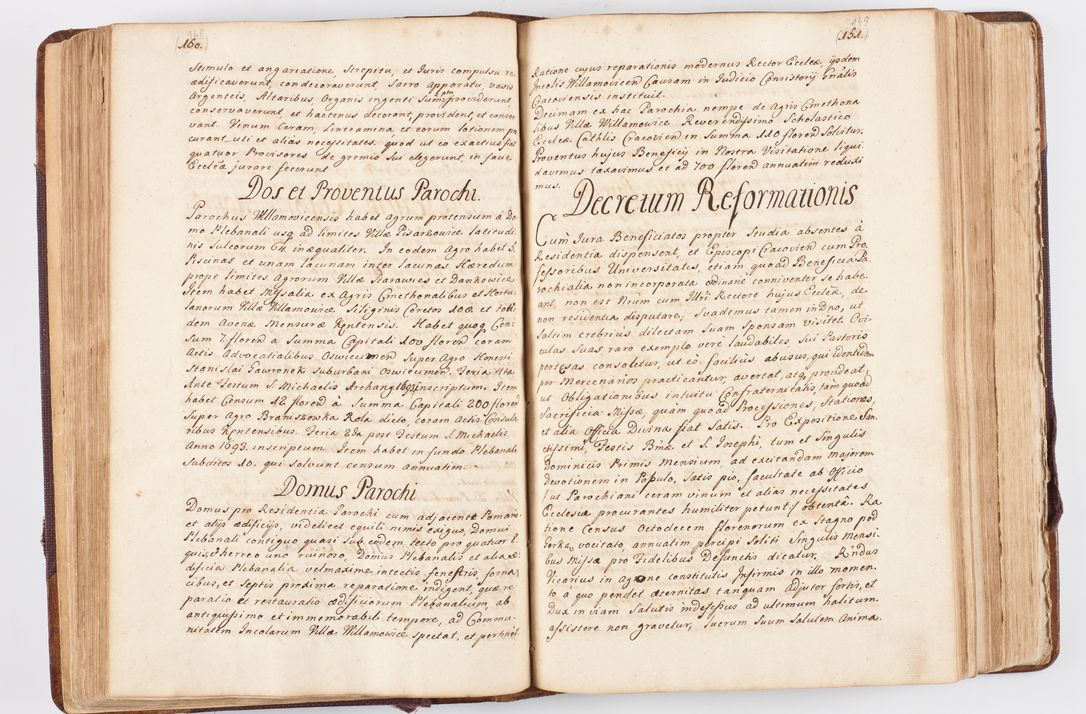 148
160.
Stimulo et angariatione, strepitu, et Iuris compulsu re
ædificaverunt, condecoraverunt, Sacro Apparatu, vasis
Argenteis, Altaribus, Organis ingenti Sumptu providerunt,
conservaverunt, et hactenus decorant, provident, et conser
vant. Vinum Ceram, linteamina, et eorum lotionem pro
curant, uti et alias necessitates. quod ut eo exactius fiat
quatuor Provisores de gremio Sui elegerunt, in facie
Ecclæ jurare fecerunt
Dos et Proventus Parochi.
Parochus Willamovicensis habet Agrum protensum à Do
mo Plebanali usq ad limites Villæ Pisarkowice latitudi
nis Sulcorum 64. inæqualiter. In eodem Agro habet 3.
Piscinas et unam lacunam inter lacunas Hæredum
prope limites Agrorum Villæ Starawies et Dankowice
Item habet Missalia ex Agris Cmethonalibus et Hortu
lanorum Villæ Willamowice Siliginis Coretos 108. et toti
dem Avenæ Mensuræ Kentensis. Habet quoq Cen
sum 7. floren à Summa Capitali 100 floren coram
Actis Advocatialibus Oswiecimen Super Agro Honesti
Stanislai Gawronek Suburbani Oswiecimen. Feria 4ta
Ante Festum S. Michaelis Archang 1693 inscriptum. Item
habet Censum 12 floren à Summa Capitali 200 floren
Super Agro Braniszowka Rola dicto, coram Actis Consula
ribus Kentensibus. Feria 2da post Festum S. Michaelis
Anno 1693. inscriptum. Item habet in fundo Plebanali
Subditos 10. qui solvunt censum annuatim.
Domus Parochi
Domus pro Residentia Parochi cum adjacente Pomario
et alijs ædificijs, videlicet equili nimis exiguo, Domui
Plebanali contiguo quasi Sub eodem tecto pro quatuor E
quis, et horreo uno ruinoso, Domus Plebanalis et alia æ
dificia Plebanalia vel maxime in tectis fenestris, forna
cibus, et Septis proxima reparatione indigent, quæ re
paratio et restauratio ædificiorum Plebanalium, ab
antiquissimo et immemorabili tempore, ad Commu
nitatem Incolarum Villæ Willamowice Spectat, et pertinet
149
151.
Ratione cujus reparationis modernus Rector Ecclæ, ijsdem
Incolis Willamovicen Causam in Iudicio Consistorij Gnalis
Cracoviensis instituit.
Decimam ex hac Parochia nempe de Agris Cmethona
libus Villæ Willamowice Reverendissimo Scholastico
Ecclæ Cathlis Cracovien in Summa 110 floren Solvitur.
Proventus hujus Beneficij in Nostra Visitatione liqui
davimus taxavimus et ad 700 floren annuatim redudi
mus.
Decretum Reformationis
Cum Iura Beneficiatos propter Studia absentes à
Residentia dispensent, et Episcopi Cracovien cum Pro
fessoribus Universitatis, etiam quoad Beneficia Pa
rochialia non incorporata ordinarie conniventer se habe
ant, non est Nrum cum Illri Rectore hujus Ecclæ, de
non residentia disputare; Suademus tamen in Dno, ut
Saltim crebrius dilectam Suam Sponsam visitet. Ovi
culas Suas raro exemplo vere laudabiles, Sui Pastoris
per tesas consoletur, ut eo facilius abusus, qui identidem
per Mercenarios practicantur, avertat, atq provideat,
ut Obligationibus intuitu Confraternitatis, tam quoad
Sacrificia Missæ, quam quoad Processiones, Stationes,
et alia Officia Divina fiat Satis. Pro Expositione San
ctissimi, Festis Bmæ et S. Iosephi, tum et Singulis
Dominicis Primis Mensium, ad excitandam majorem
Devotionem in Populo, Satis pio, facultate ab Officio
/ut Parochiani ceram vinum et alias necessitates
Ecclesiæ procurantes humiliter petunt:/ obtenta. Ra
tione Census Octodecem florenorum ex Stagno pod
Gorką vocitato, annuatim percipi Soliti Singulis Mensi
bus Missa pro Fidelibus Defunctis dicatur, Rndus
Vicarius in Agone constitutis Infirmis in illo momen
to à quo pendet æternitas tanquam Adjutor fortis, et
Dux in viam Salutis indefessus ad ultimum halitum
assistere non gravetur, Suorum Suum Salutem Anima.